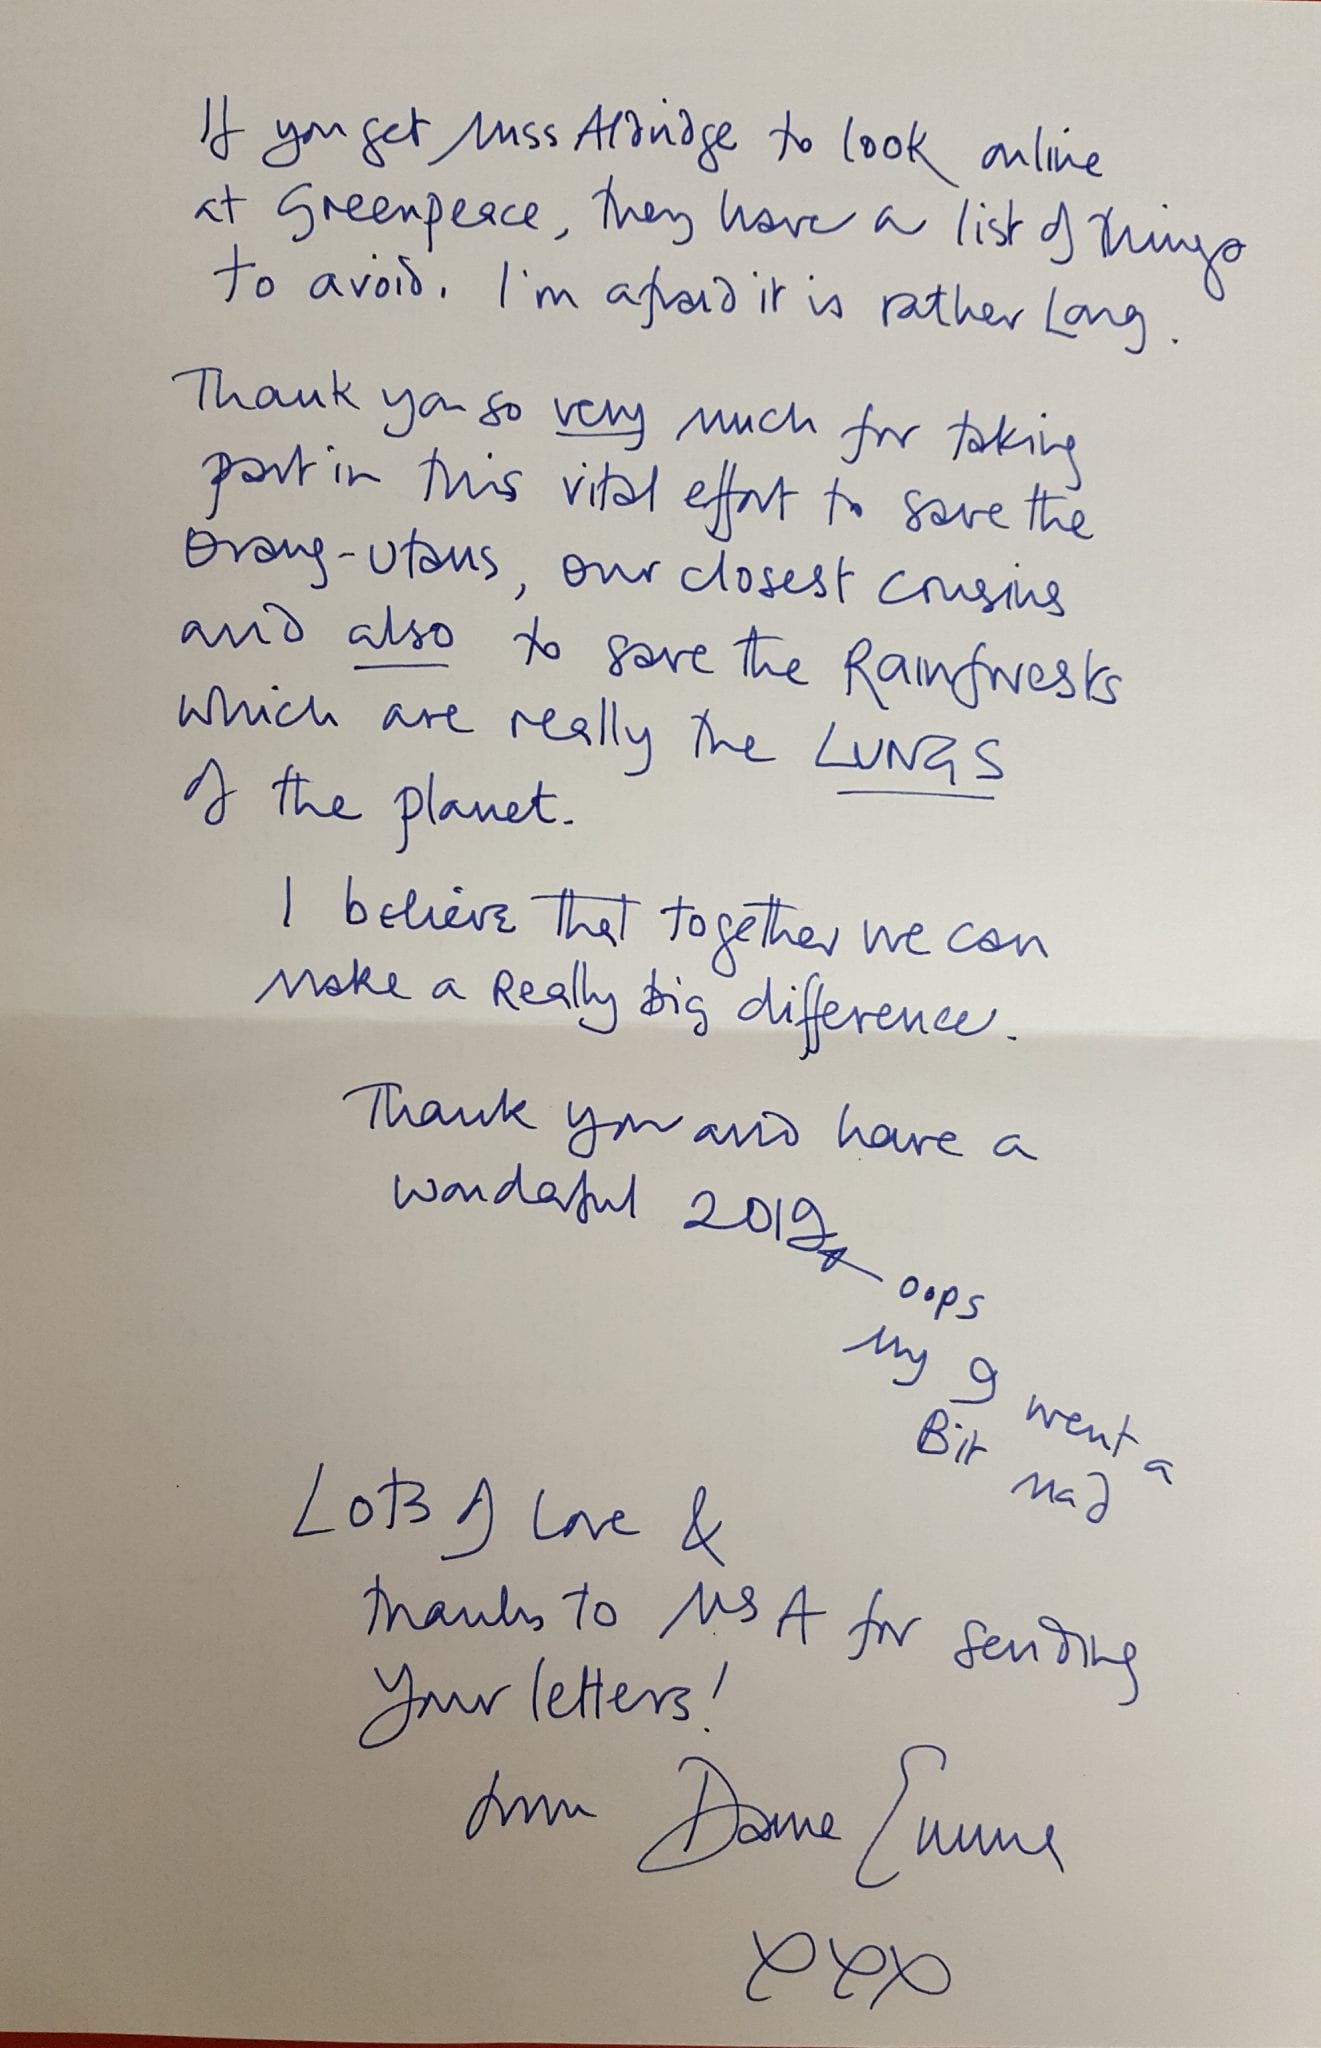 If you get Miss Aldridge to look online
at Greenpeace, they have a list of things
to avoid. I'm afraid it is rather Long.
Thank you so very much for taking
part in this vital effort to save the
Orang-utans, our closest cousins
and also to save the Rainforests
which are really the LUNGS
of the planet.
I believe that together we can
make a Really big difference.
Thank you and have a
wonderful 2019
oops
My 9 went a
Bit mad
LOTS of Love &
thanks to Ms A for sending
your letters!
from Dame Emma
xxx